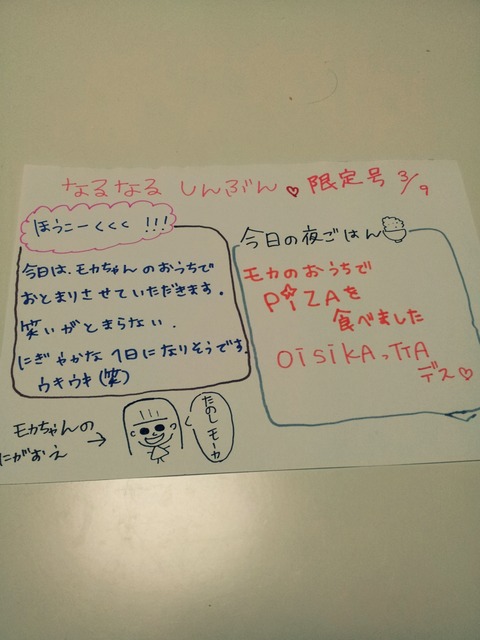 なるなる しんぶん♡ 限定号 3/9
ほうこーくくく !!!
今日は、モカちゃんのおうちで
おとまりさせていただきます。
笑いがとまらない.
にぎやかな1日になりそうです.
ウキウキ(笑)
今日の夜ごはん
モカのおうちで
PiZAを
食べました
OiSiKA,TTA
デス♡
モカちゃんの
にがおえ
→
たのしモーカ